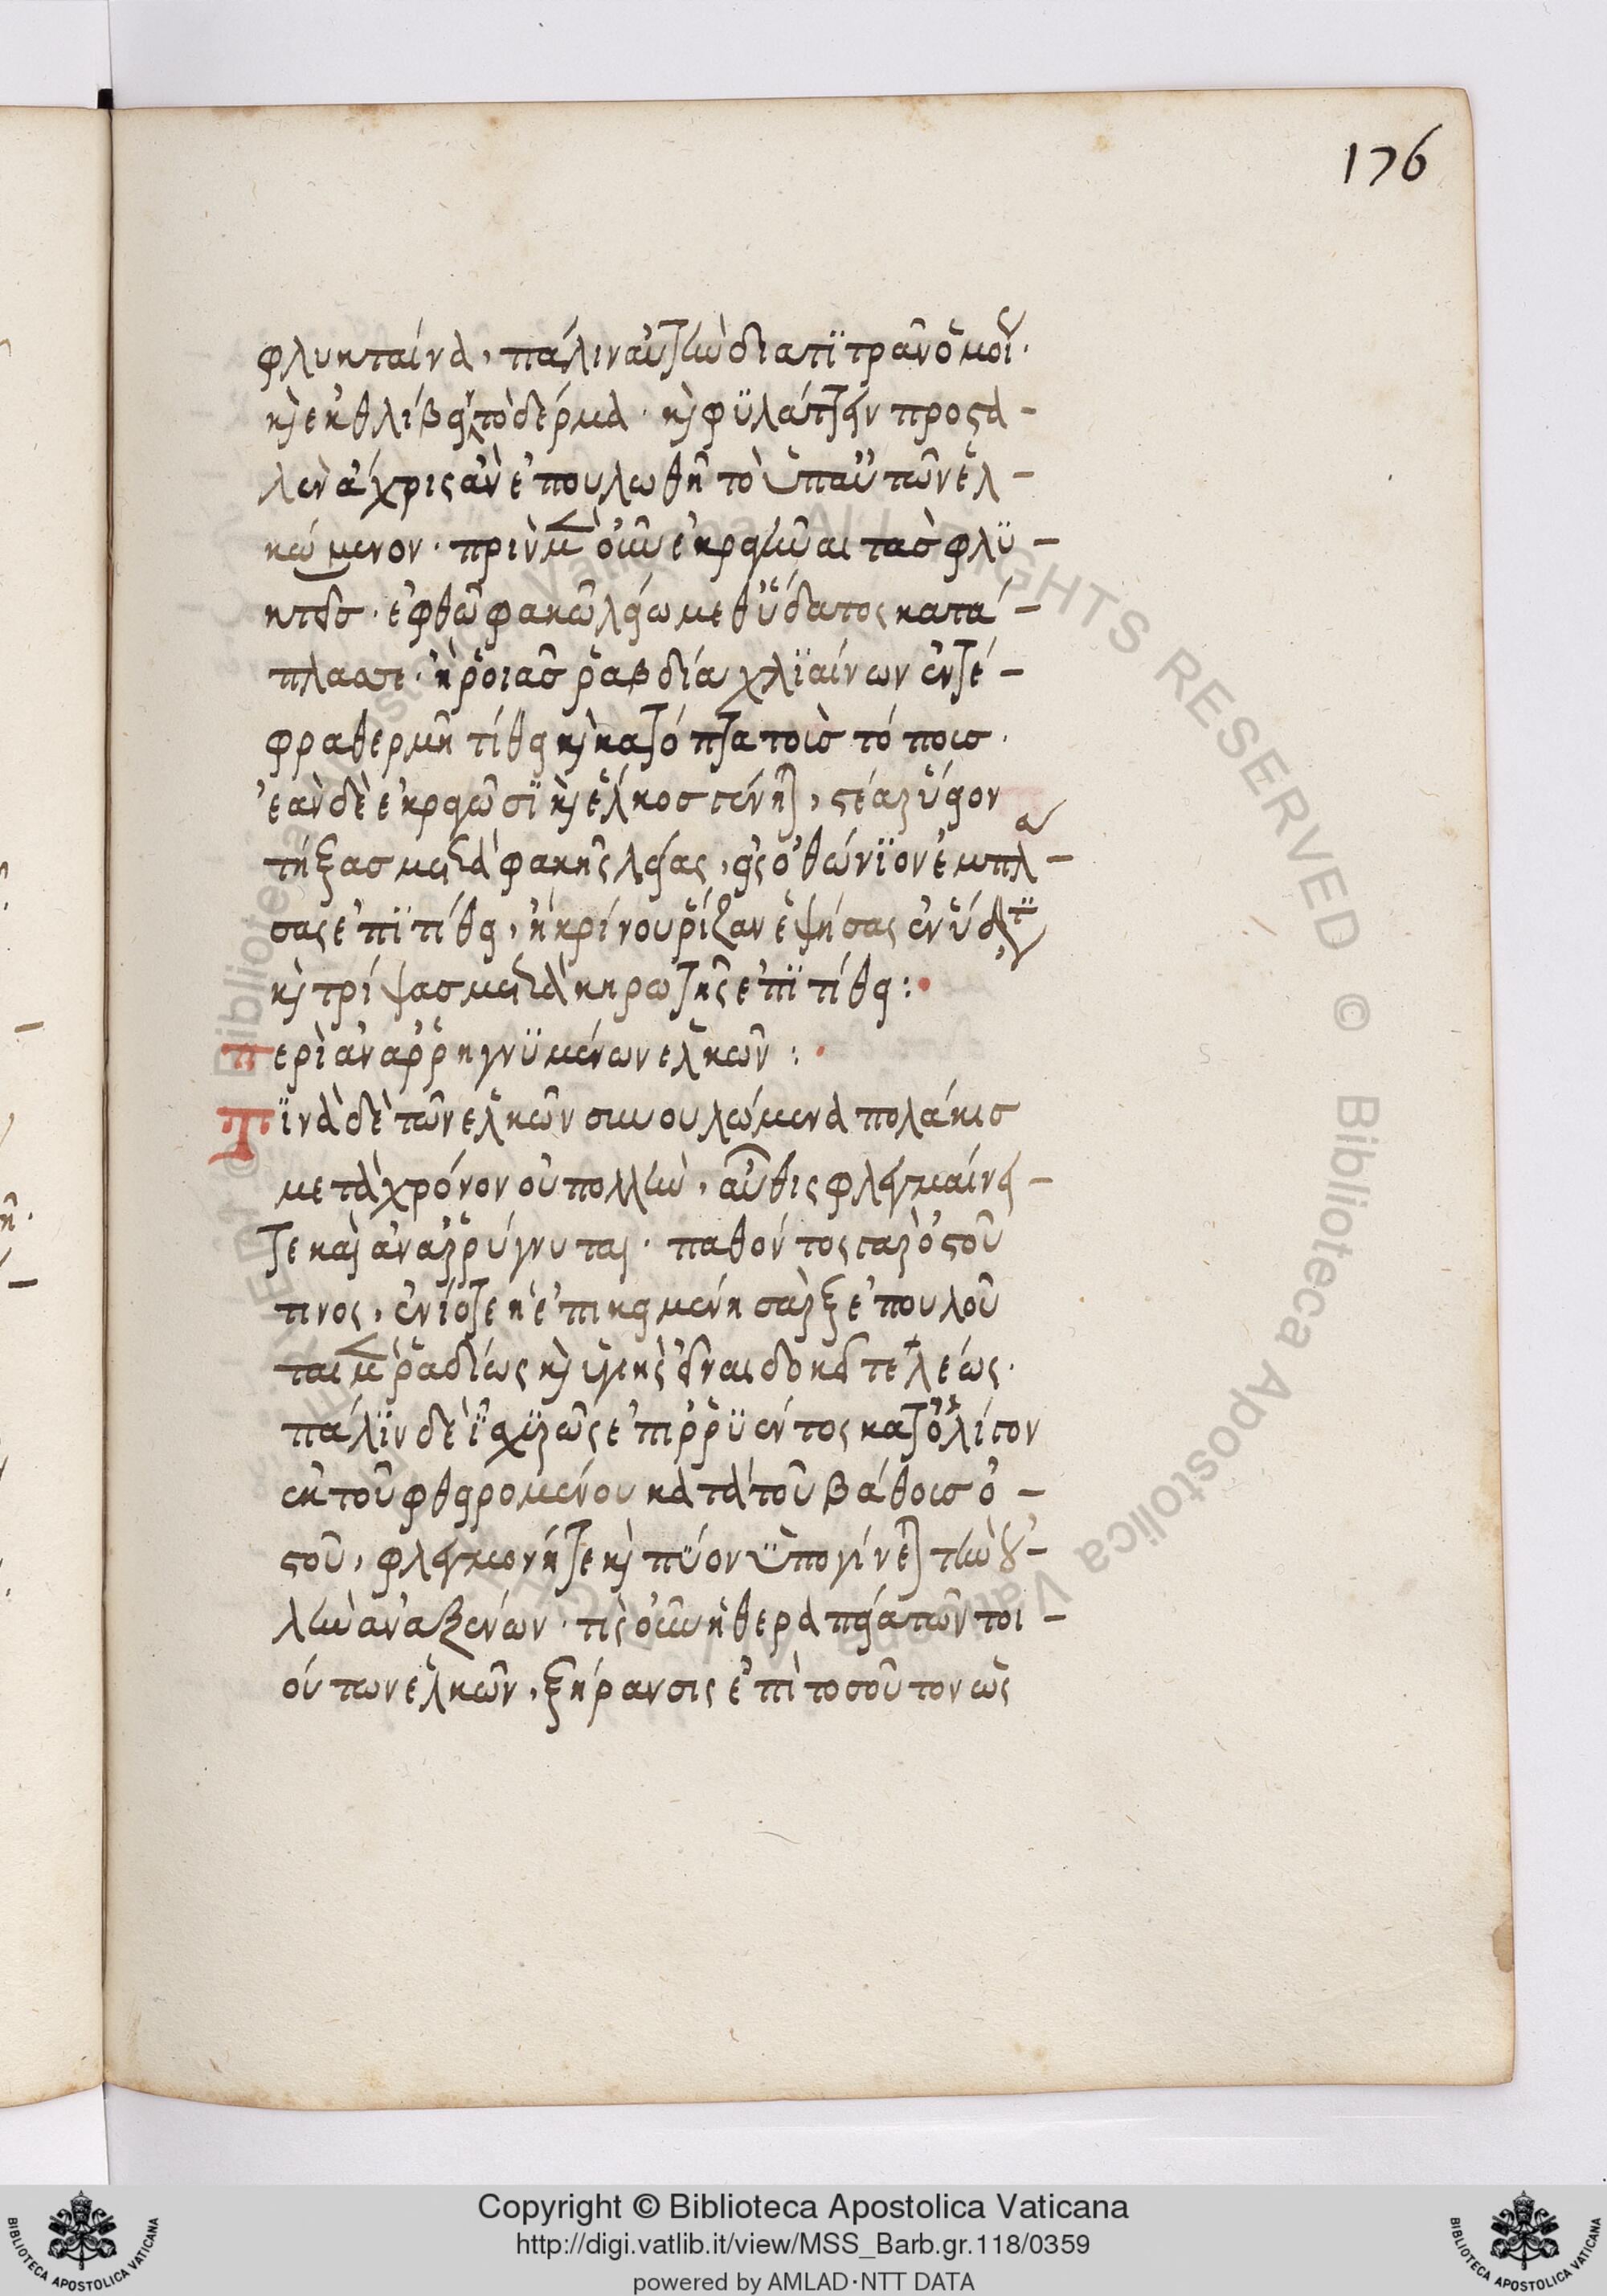 176
φλυκταίνα, πάλιν αὐτὴν διατιτρᾶν ὁμοί·
κὴ ἐκθλίβειν τὸ δέρμα · κὴ φϋλάττειν προςα-
λὲν ἄχρις ἀν ἐπουλωθῆ τὸ ὑπ αὐτῶν ἑλ-
κώμενον · πρὶν μὲν οὖν ἐκραγῆναι τὰσ φλϋ-
κτεσ · ἑφθῶ φακῶ λείω μεθ ὕδατος κατά-
πλασσε · ἢ ῥοιᾶσ ῥαβδία χλϊαίνων ἐν τέ-
φρα θερμῆ τίθει κὴ κατόπτα τοὺσ τόπουσ ·
ἐὰν δὲ ἐκραγῶσϊ κὴ ἕλκοσ γένηται, στέαρ ὕειον
τήξασ μετὰ φακῆς λείας, εἰς ὀθώνϊον ἐμπλ-
σας ἐπϊτίθει, ἢ κρίνου ῥίζαν ἑψήσας ἐν ὕδατϊ
κὴ τρίψασ μετὰ κηρωτῆς ἐπϊτίθει :·
περὶ ἀναῤῥηγνϋμένων ἑλκῶν :·
Τϊνὰ δὲ τῶν ἑλκῶν συνουλώμενα πολάκισ
μετὰ χρόνον οὐ πολλὺν, αὖθις φλεγμαίνει-
τε καὶ ἀναρρύγνυται · παθόντος γαρ ὀστοῦ
τινος, ἐνίοτε ἡ ἐπικειμένη σὰρξ ἐπουλοῦ
ται μὲν ῥαδίως κὴ ὑγιὴς εἶναι δοκεῖ τελέως ·
πάλϊν δὲ ἰχώρος ἐπιῤῥϋέντος κατ ὀλίγον
ἐκ τοῦ φθειρομένου κατὰ τοῦ βάθουσ ὀ-
στοῦ, φλεγμονή τε κὴ πϋον ὑπογίνεται τὴν οὐ-
λὴν ἀναξενών · τὶς οὖν ἡ θεραπεία τῶν τοι-
ούτων ἑλκῶν, ξήρανσις ἐπὶ τοσοῦτον ὡς
Copyright © Biblioteca Apostolica Vaticana
http://digi.vatlib.it/view/MSS_Barb.gr.118/0359
powered by AMLAD·NTT DATA